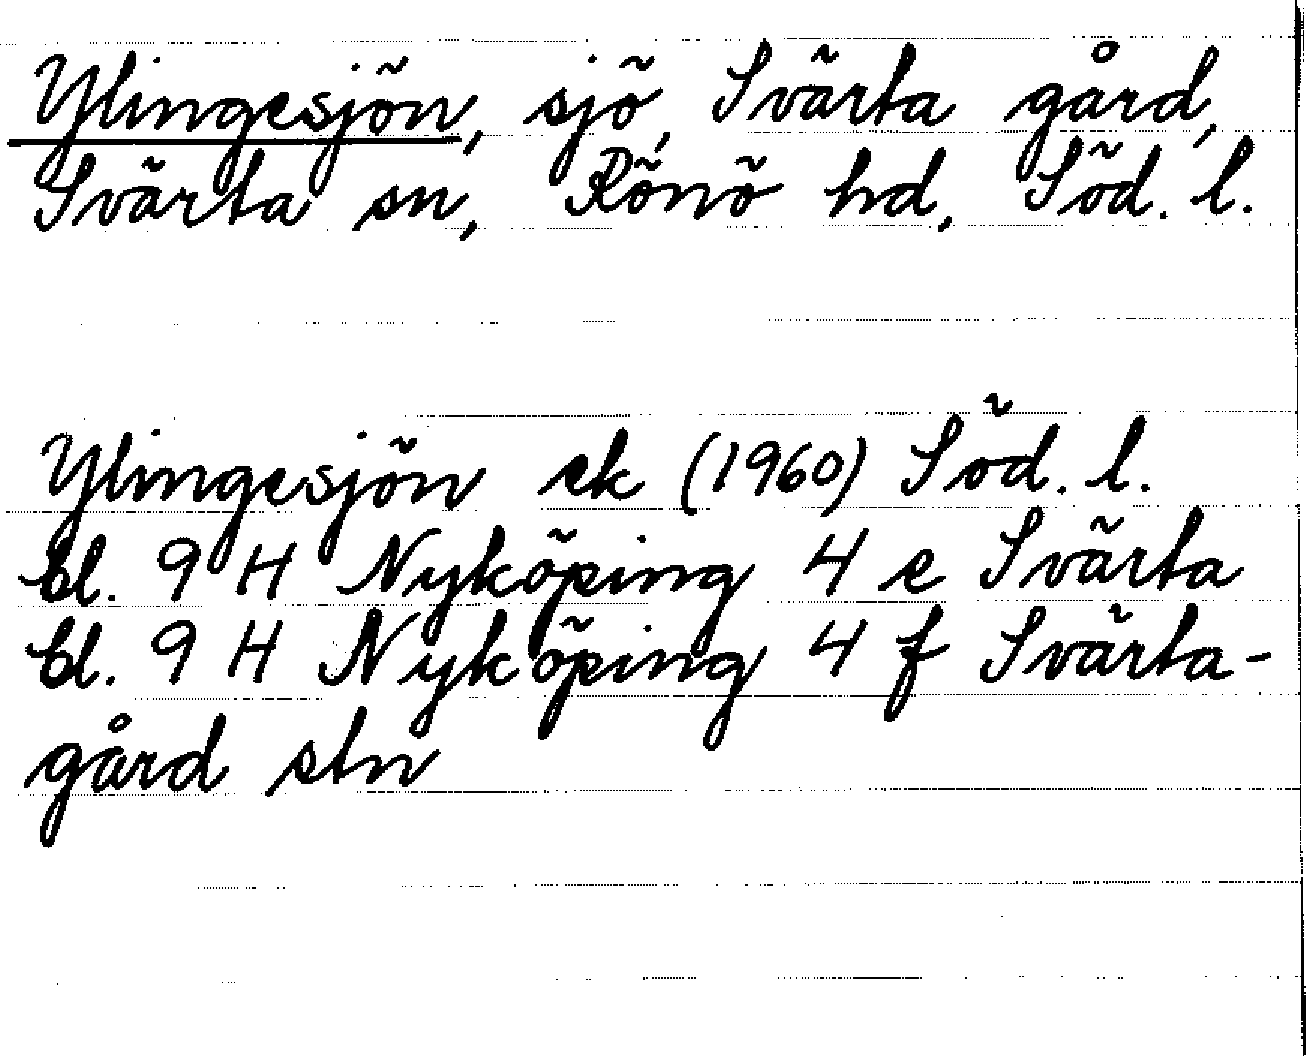 Ylingesjön, sjö, Svärta gård,
Svärta sn, Rönö hd, Söd. l.
Ylingesjön ek (1960) Söd. l.
bl. 9 H Nyköping 4 e Svärta
bl. 9 H Nyköping 4 f Svärta-
gård stn